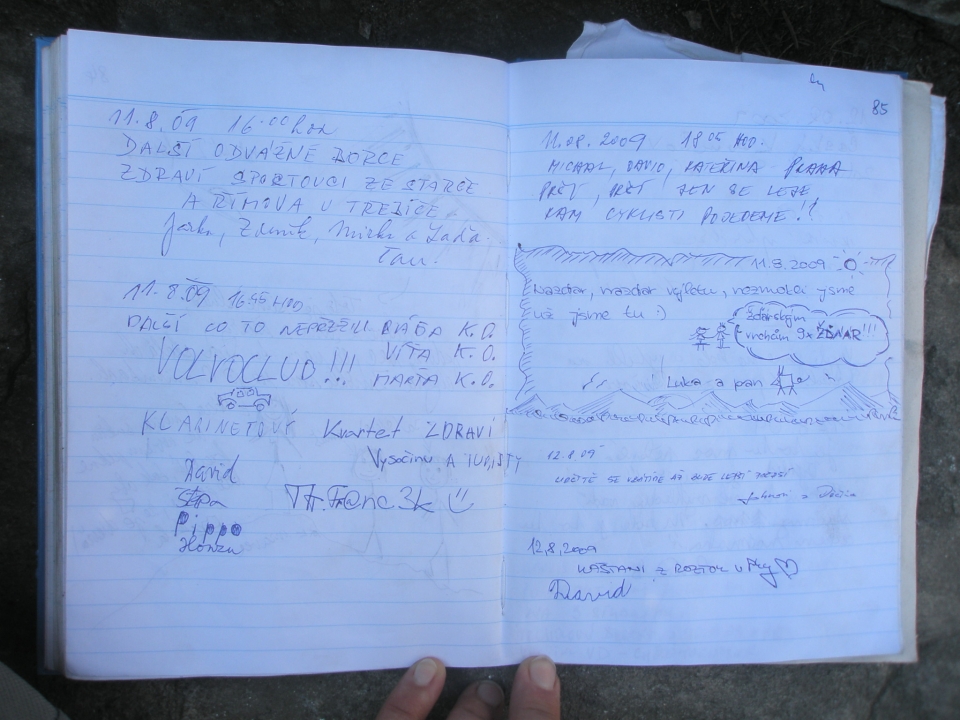 11.8.09 16.00 hod
DALŠÍ ODVÁŽNÉ BORCE
ZDRAVÍ SPORTOVCI ZE STARČE
A ŘÍMOVA U TŘEBÍČE
Jarka, Zdeněk, Mirka a Laďa.
11.8.09 16.45 HOD
DALŠÍ CO TO NEPŘEŽILI BÁBA K.O.
VÍŤA K.O.
VOLVOCLUB !!! MARŤA K.O.
KLARINETOVÝ Kvartet ZDRAVÍ
Vysočinu A TURISTY
David
Štěpa
Pippo
Honza
85
11.08.2009 18.05 HOD.
MICHAL, DAVID, KATEŘINA PRAHA
PRŠÍ, PRŠÍ JEN SE LEJE
KAM CYKLISTI POJEDEME !!
11.8.2009
Nazdar, nazdar výletu, nezmokli jsme
už jsme tu :)
Žďárským
vrchům 9x ŽĎÁR!!!
Luka a pan
12.8.09
URČITĚ SE VRÁTÍME AŽ BUDE LEPŠÍ POČASÍ
12.8.2009
KAŠTANI Z ROZTOK u Prg
David